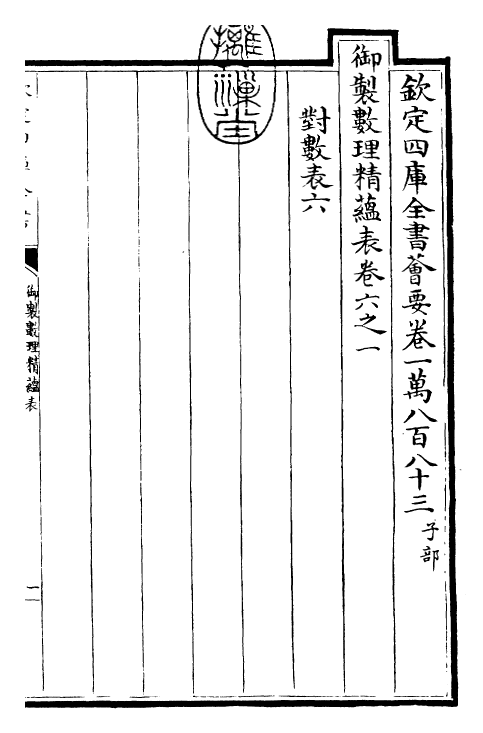 欽定四庫全書薈要卷一萬八百八十三子部
御製數理精蘊表卷六之一
對數表六
摛藻堂
御製數理精蘊表
一